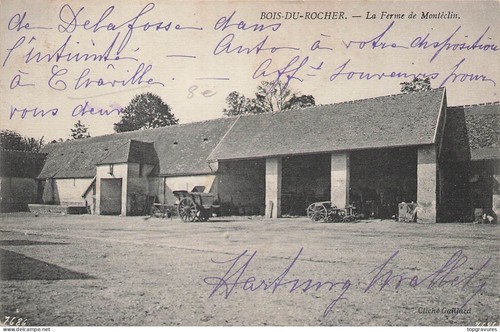 BOIS-DU-ROCHER. — La Ferme de Montéclin.
de Delafosse dans
l'intimité — Auto à votre disposition
à Chàville — Aff.ts souvenirs pour
vous deux
Hartung
Cliché Gaillard
7686
topgravures